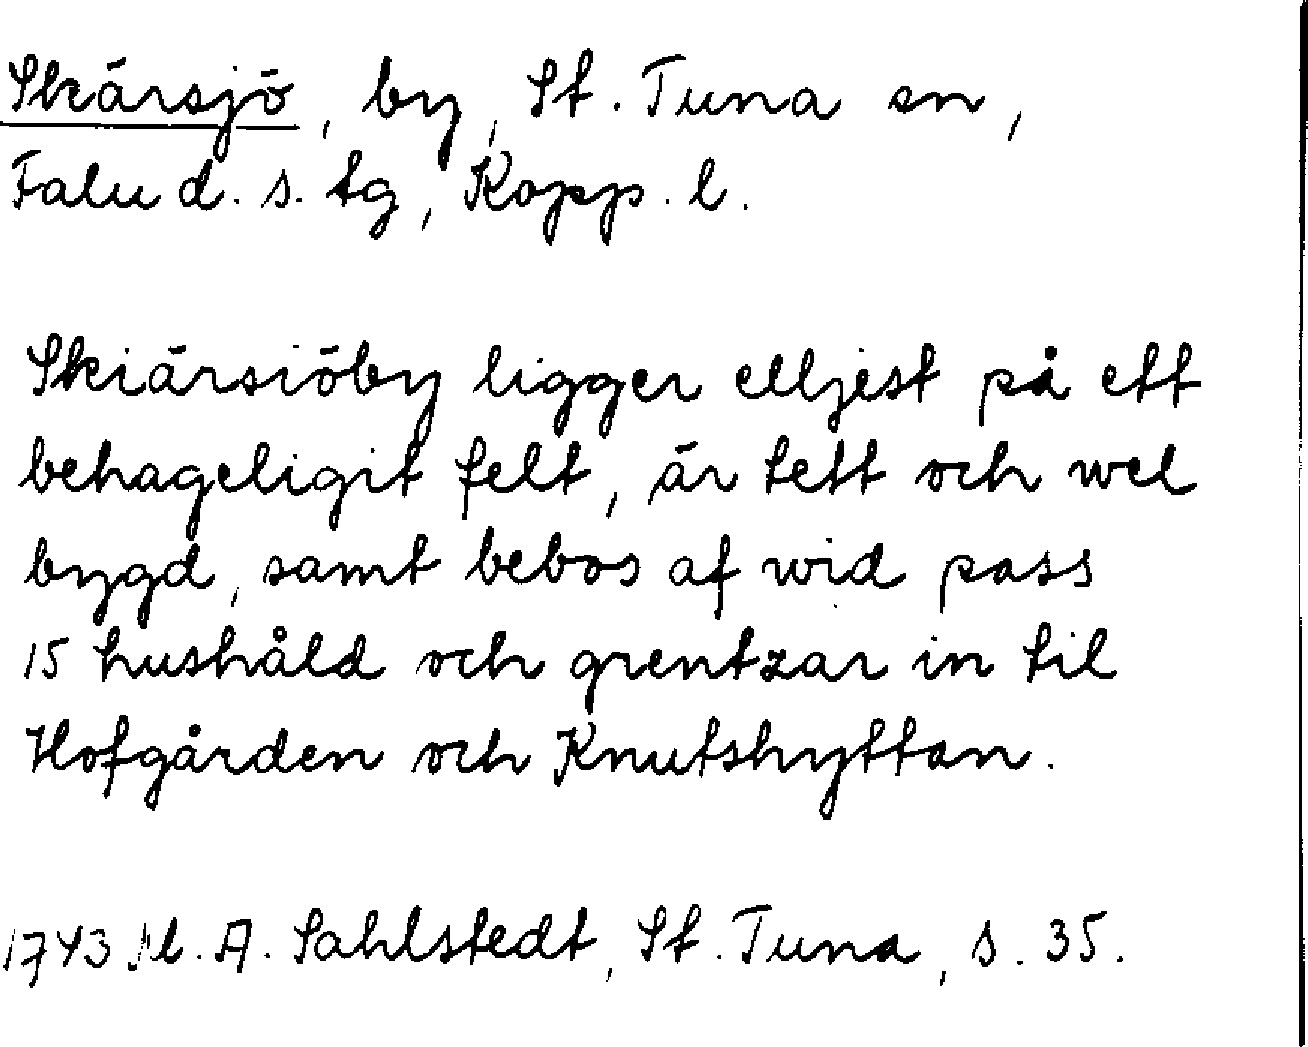 Skärsjö, by, St. Tuna sn,
Falu d. s. tg, Kopp. l.
Skiärsiöby ligger elljest på ett
behageligit felt, är tett och wel
bygd, samt bebos af wid pass
15 hushåld och grentzar in til
Hofgården och Knutshyttan.
1743 M. A. Sahlstedt, St. Tuna, s. 35.